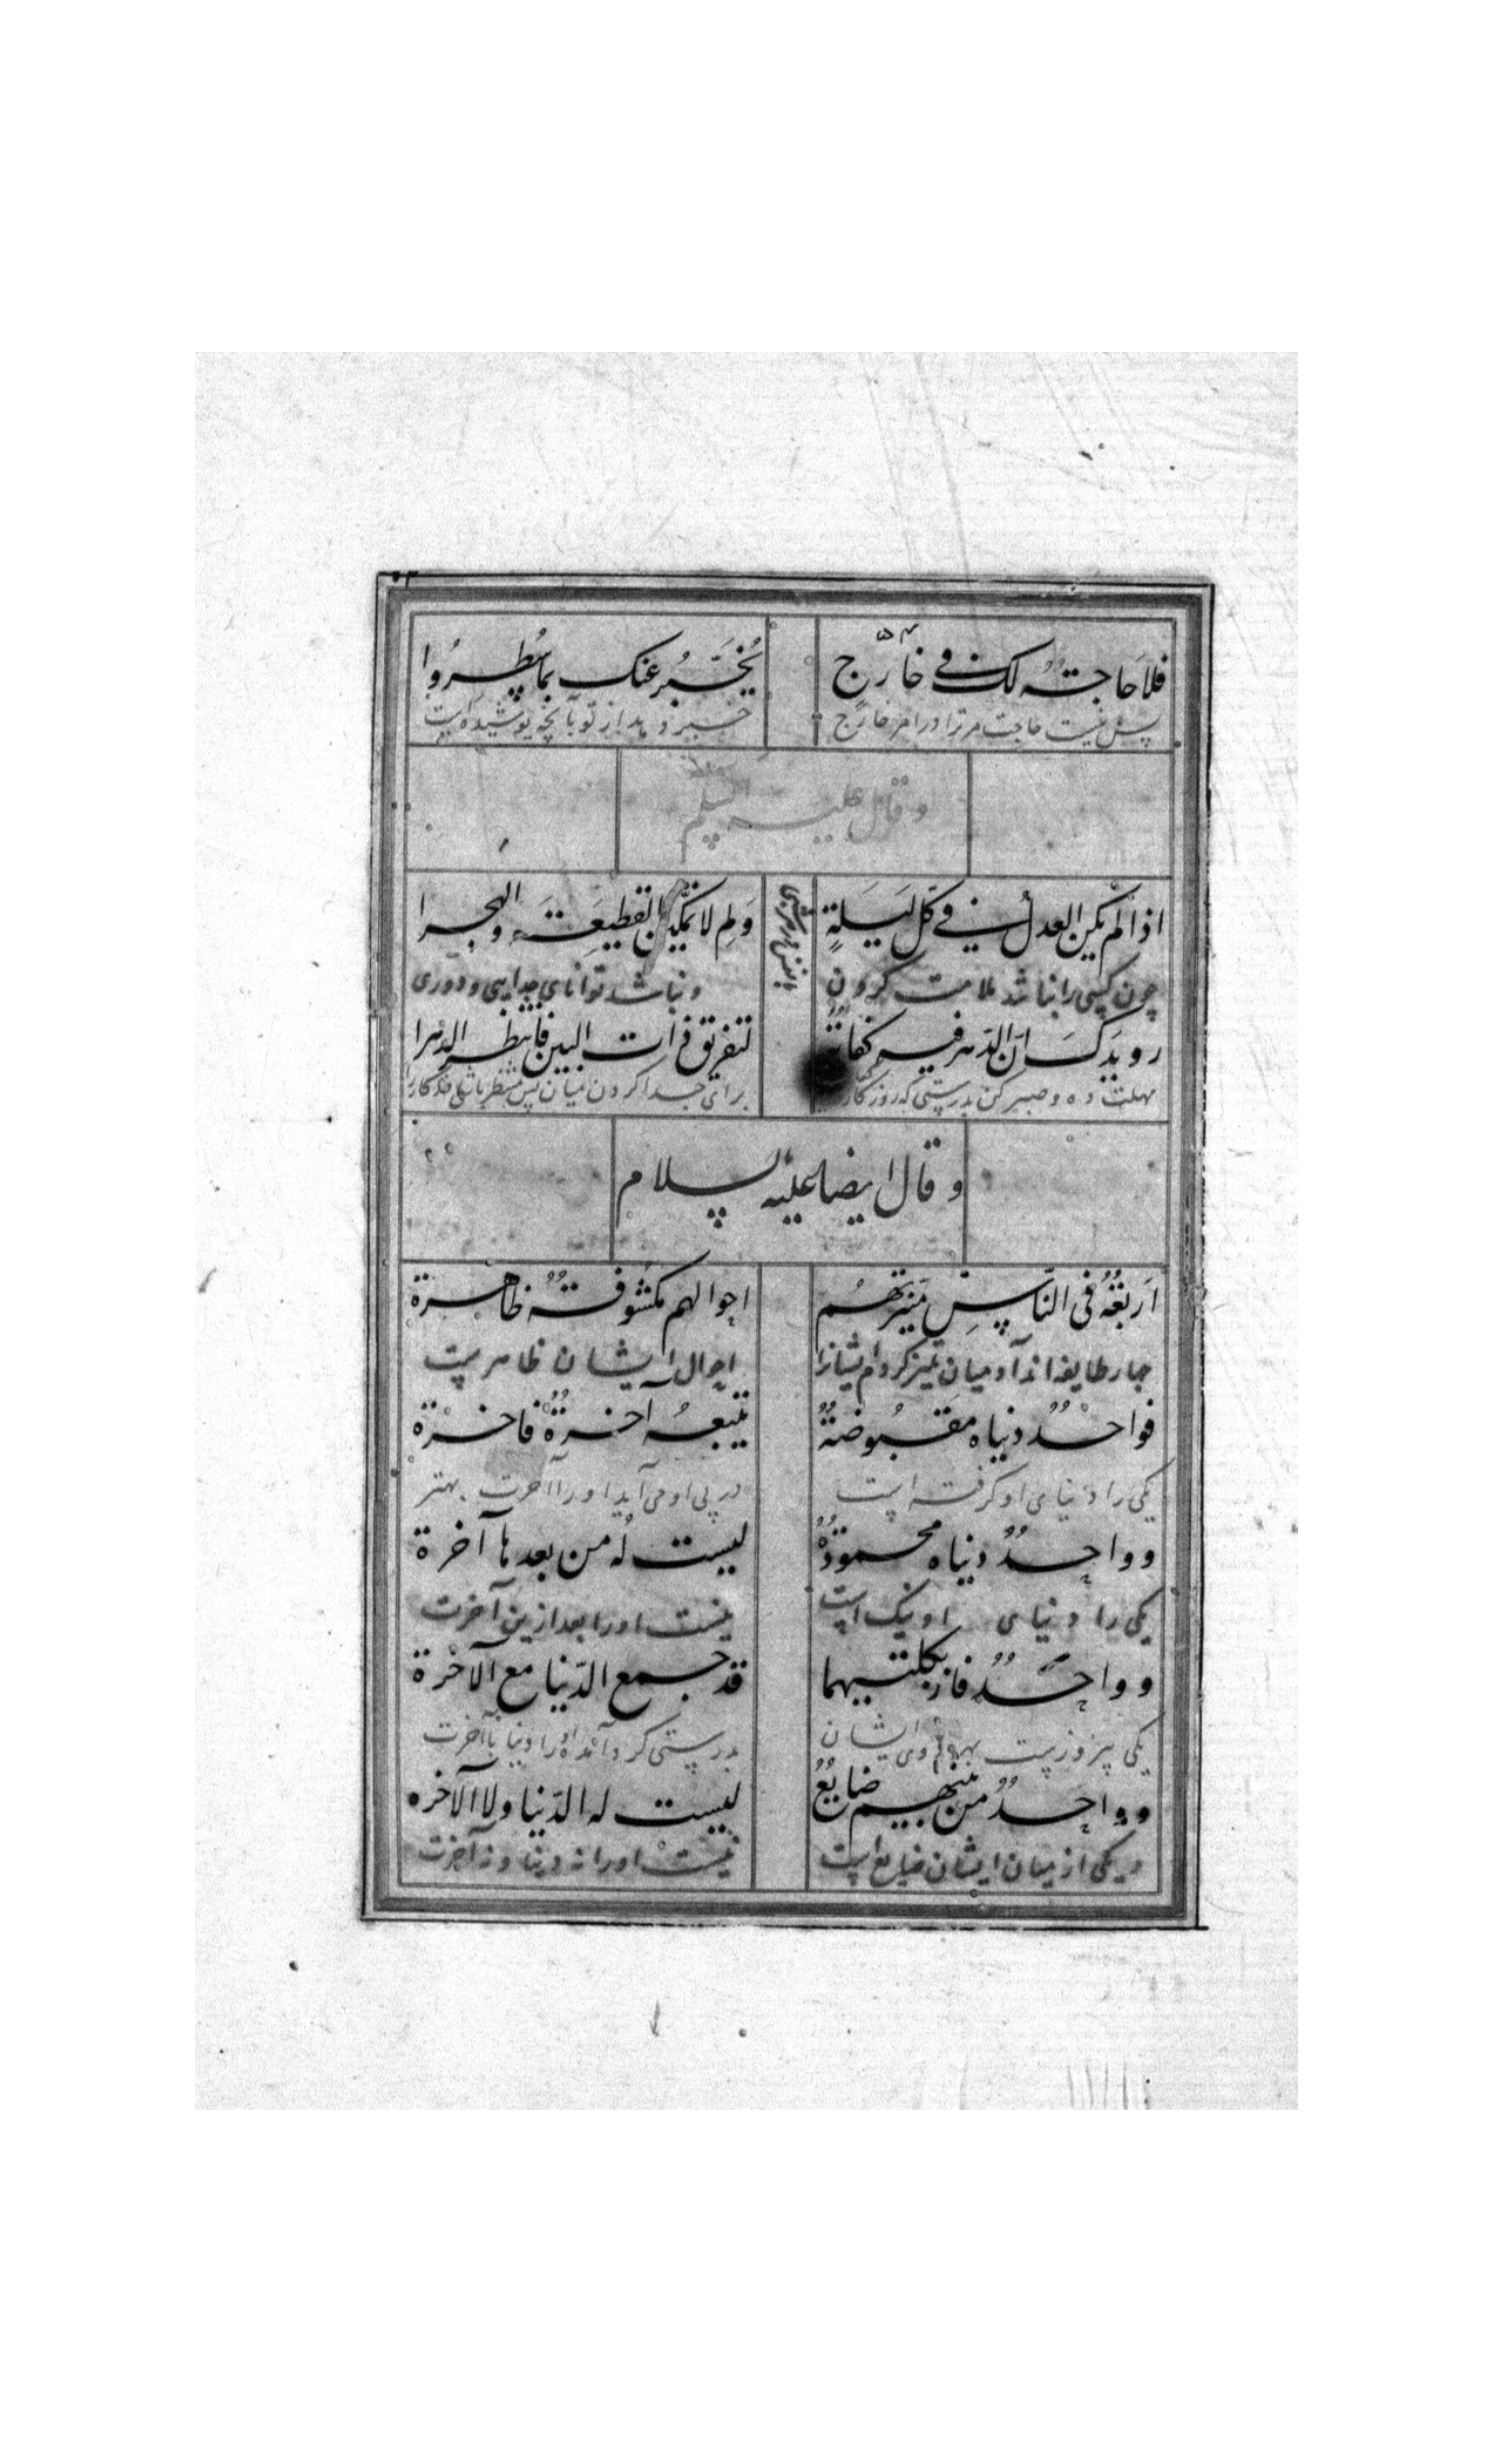 فلا حاجة لك في خارج
یخبر عنک بما یسطروا
پس نیست حاجت مر ترا در امر خارج
خبر دهد از تو بآنچه پوشیده است
و قال علیه السلم
اذا لم یکن العدل في کل لیلة
ولم لا یمکن القطیعة والهجرا
چون کسی را نباشد ملامت کردن
و نباشد توانای جدایی و دوری
رویدک ان الدهر فیه کفایة
لتفریق ذات البین فانتظر الدهرا
مهلت ده و صبر کن بدرستی که روزکار
برای جدا کردن میان پس منتظر باش
و قال ایضا علیه السلام
اربعة فی الناس میزتهم
احوالهم مکشوفة ظاهرة
چهار طایفه اند آدمیان تمیز کردم ایشانرا
احوال ایشان ظاهرست
فواحد دنیاه مقبوضة
یتبعه آخرة فاخرة
یکی را دنیای او کرفته است
در پی او می آید او را آخرت بهتر
وواحد دنیاه محمودة
لیست له من بعدها آخرة
یکی را دنیای او نیک است
نیست او را بعد ازین آخرت
وواحد فاز بکلتیهما
قد جمع الدنیا مع الآخرة
یکی پیروزیست بهر دوی ایشان
بدرستی کرد آمده او را دنیا با آخرت
وواحد من بینهم ضایع
لیست له الدنیا ولا الآخره
و یکی از میان ایشان ضایع است
نیست او را نه دنیا و نه آخرت